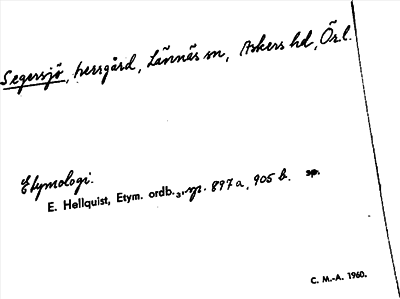 Segersjö, herrgård, Lännäs sn, Askers hd, Ör.l.
Etymologi.
E. Hellquist, Etym. ordb.₃, 897 a, 905 b. sp.
C. M.-A. 1960.